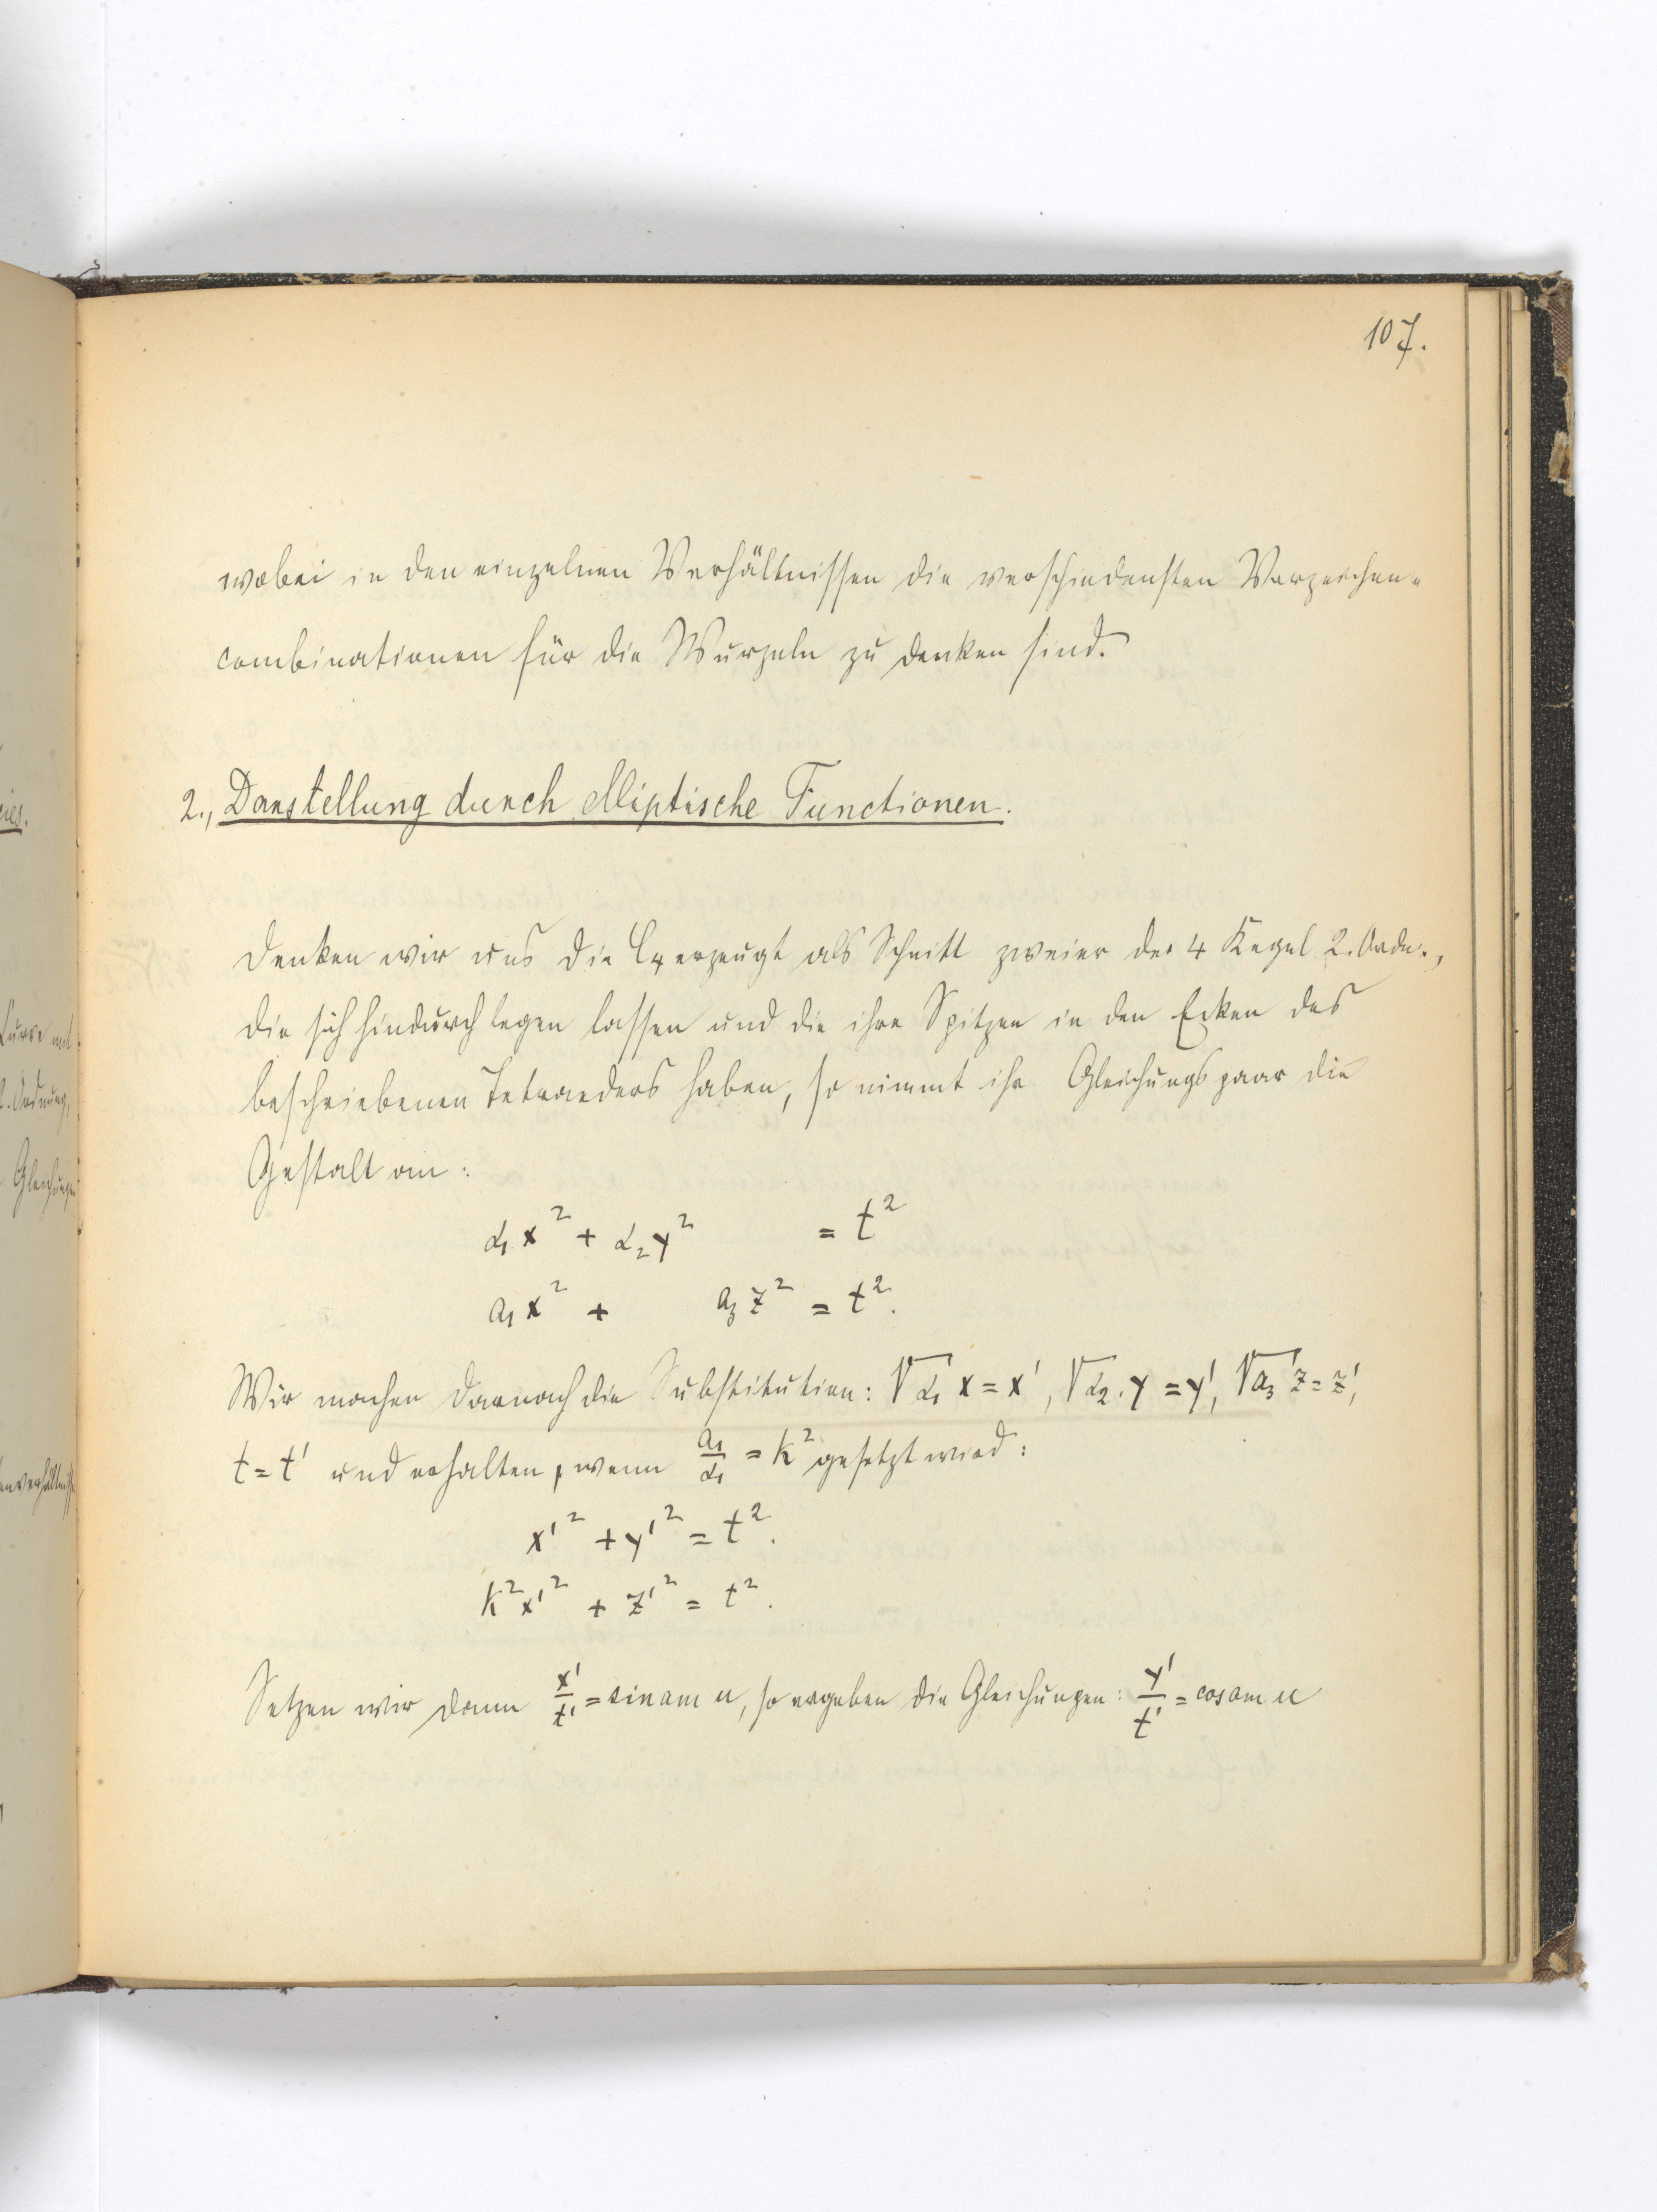 107.
wobei in den einzelnen Verhältnissen die verschiedensten Vorzeichen-
combinationen für die Wurzeln zu denken sind.
2., Darstellung durch elliptische Functionen.
Denken wir uns die C₄ erzeugt als Schnitt zweier der 4 Kegel 2. Ordn.,
die sich hindurch legen lassen und die ihre Spitzen in den Ecken des
beschriebenen Tetraeders haben, so nimmt ihr Gleichungspaar die
Gestalt an:
α₁x² + α₂y² = t²
a₁x² + a₃z² = t².
Wir machen darnach die Substitution: √α₁ x = x', √α₂ . y = y', √a₃ z = z',
t = t' und erhalten, wenn a₁/α₁ = k² gesetzt wird:
x'² + y'² = t².
k²x'² + z'² = t².
Setzen wir dann x'/t' = sinam u, so ergeben die Gleichungen: y'/t' = cosam u